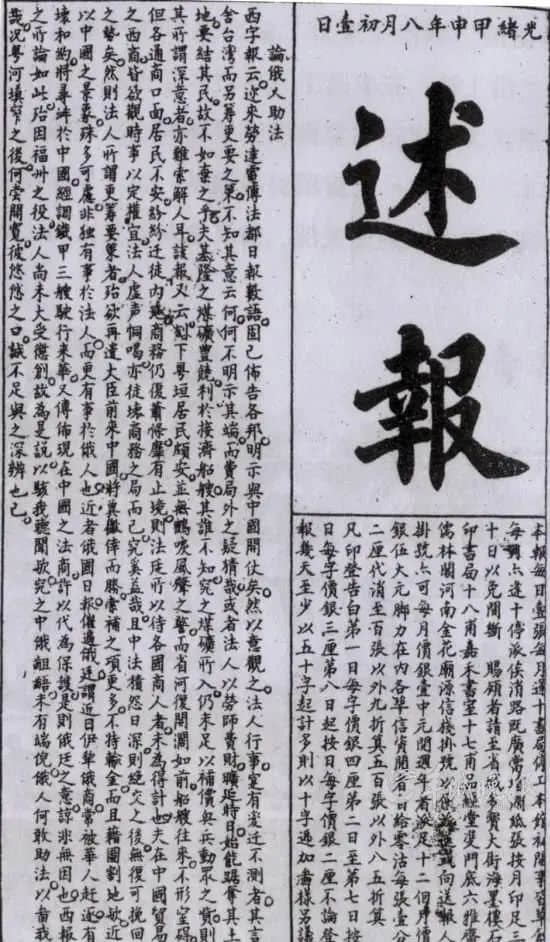 光緒甲申年八月初壹日
述
報
十日以免閒斷 賜顧者請至省城多寶大街海墨樓石
印書局十八甫嘉禾書室十七甫品經堂雙門底六雅齋
儒林閣河南金花廟源信棧掛號以便派送或向送報人
掛號亦可每月價銀壹中元閏週年者派足十二個月價
銀伍大元腳力在內各埠信資閱者自給零沽每張壹分
二厘代消至百張以外九折算五百張以外八五折算
凡印登告白第一日每字價銀四厘第二日至第七日按
日每字價銀三厘第八日起按日每字價銀二厘不論登
報幾天至少以五十字起計多則以十字遞加畵樣另議
論俄人助法
西字報云近來勞達電傳法都日報數語固已佈告各邦明示與中國開仗矣然以意觀之法人行事寔有近不測者其言
舍台灣而另籌更要之策不知其意云何何不明示其端而費局外之疑猜哉或者法人以勞師費財曠延時日始能踞奪其土
地要結其民故不如棄之乎夫基隆之煤礦豐饒利於接濟船艘其誰不知究之煤礦所入仍未足以補價興兵動眾之費則
其所謂深意者亦難索解人耳該報又云刻下粵垣居民頗安並無鶴唳風聲之警而省河復開濶如前船艘往來不形窒碍
但各通商口面居民不安紛紛迁徙內地商務仍復蕭條靡有止境則法廷所以待各國商人者未為得計也夫在中國貿易
之西商皆欲觀時事以定權宜法人虛声恫喝亦徒壞商務之局而已究奚益哉且中法積怨日深則絕交之後無復可挽回
之勢矣然則法人所謂更籌要策者殆欲再遣大臣前來中國將冀徼倖而勝索補之項更多不特輸金而且藉圖割地歟近
以中國之景象殊多可慮非独有事於法人而更有事於俄人也近者俄國日報催過俄廷謂近日伊犂俄商常被華人赶逐有
壞和約將尋衅於中國經調鐵甲三艘駛行來華又傳佈現在中國之法商許以代為保護是則俄廷之意諒非無因也西報
之所論如此殆因福州之役法人尚未大受懲創故為是說以駭我聽聞歟究之中俄齟齬未有端倪俄人何敢助法以啚我
哉況粤河填窄之後何嘗開寬彼悠悠之口誠不足與之深辨也已